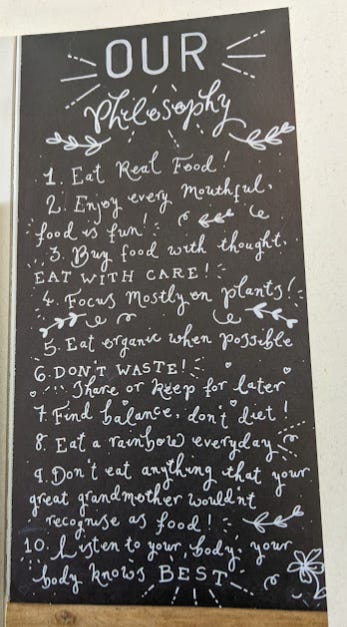 OUR
Philosophy
1. Eat Real Food!
2. Enjoy every Mouthful,
food is fun!
3. Buy food with thought,
EAT WITH CARE!
4. Focus Mostly on plants!
5. Eat organic when possible
6. DON'T WASTE!
Share or keep for later
7. Find balance, don't diet!
8. Eat a rainbow everyday
9. Don't eat anything that your
great grandmother wouldnt
recognise as food!
10. Listen to your body, your
body knows BEST